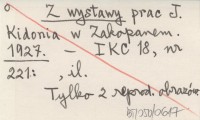 Z wystawy prac J.
Kidonia w Zakopanem.
1927. – IKC 18, nr
221: , il.
Tylko 2 reprod. obrazów